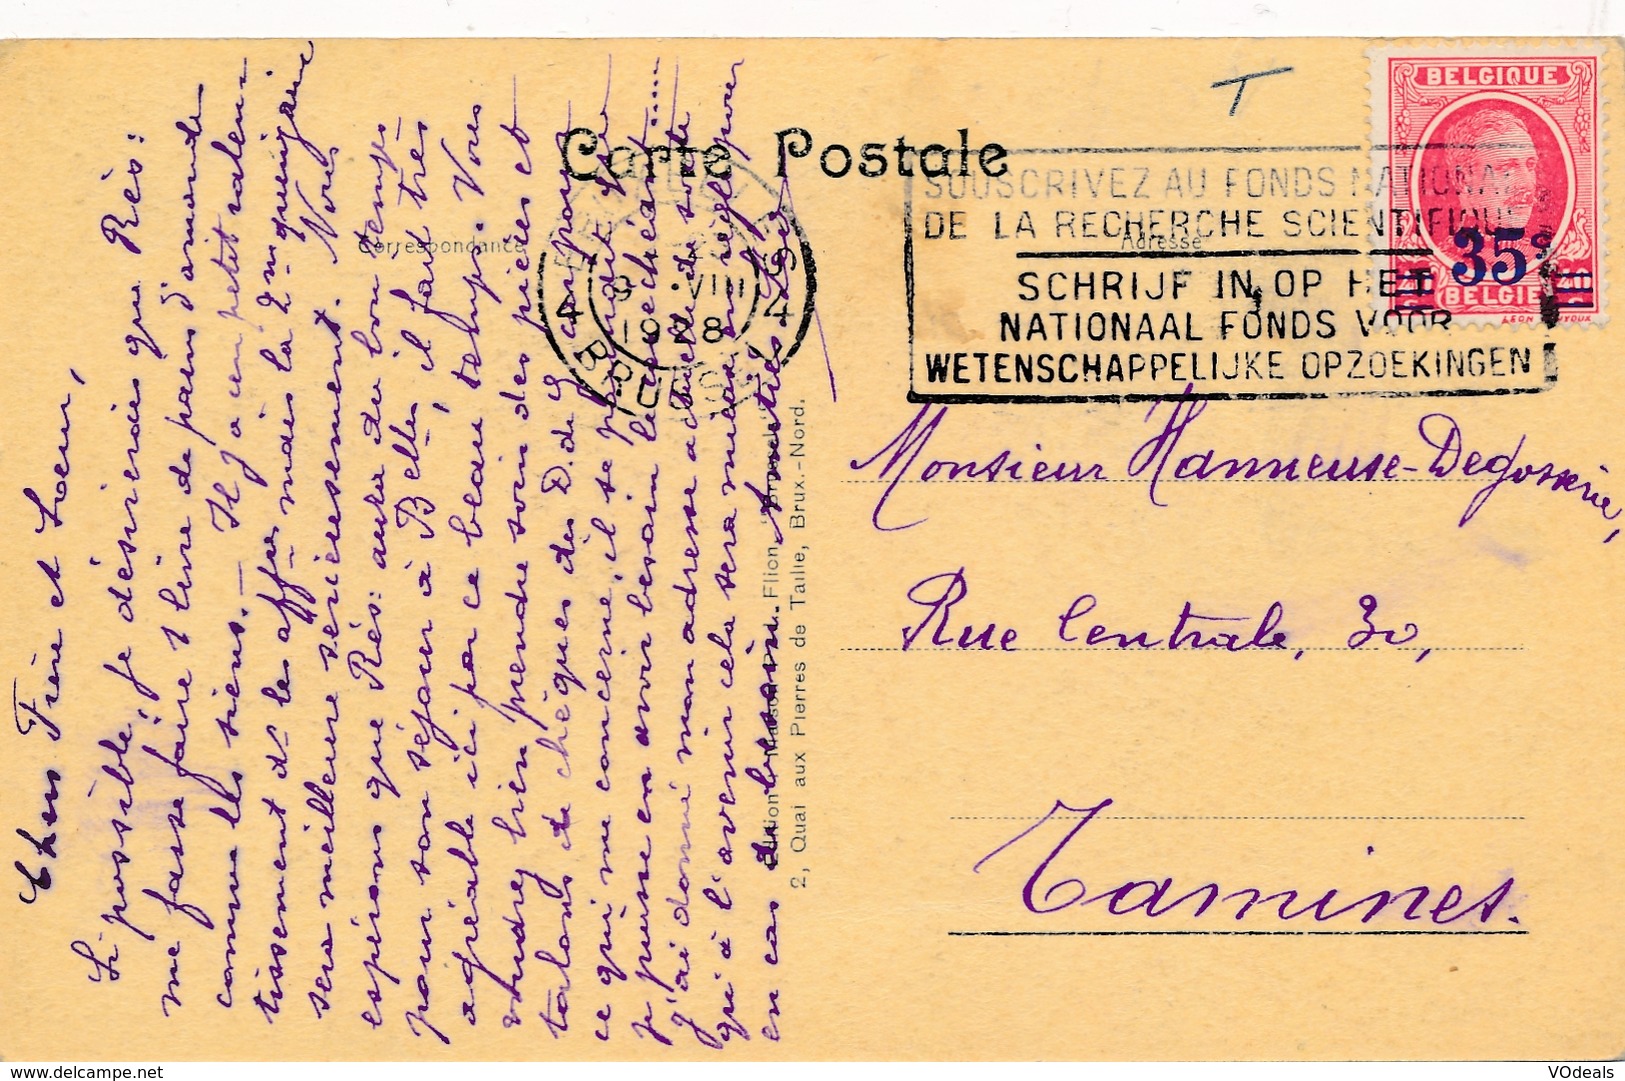 Carte Postale
Correspondance
Adresse
T
BELGIQUE
35c
BELGIE
SOUSCRIVEZ AU FONDS NATIONAL
DE LA RECHERCHE SCIENTIFIQUE
SCHRIJF IN OP HET
NATIONAAL FONDS VOOR
WETENSCHAPPELIJKE OPZOEKINGEN
4 4
VIII
Monsieur Hanneuse-Degosserie,
Rue Centrale, 30,
Tamines.
Chers Frère et Soeur,
Si possible, je désirerais que Rès:
me fasse faire 1 livre de pains d'amande
comme les siens. — Il y a un petit ralen-
tissement ds les affres mais la 2me quinzaine
sera meilleure sérieusement. Nous
espérons que Rès: aura du bon temps
pour son séjour à Belle, il fait très
agréable ici par ce beau temps. Vous
voudrez bien prendre soin des pièces et
talons de chèques des D. de G. car pour
ce qui me concerne, il se pourrait que
je puisse en avoir besoin le cas échéant....
j'ai donné mon adresse actuelle de sorte
qu'à l'avenir cela sera mieux réglé pour
en cas de besoin.
Edition Maison P. Flion, Bruxelles
2, Quai aux Pierres de Taille, Brux.-Nord.
VOdeals